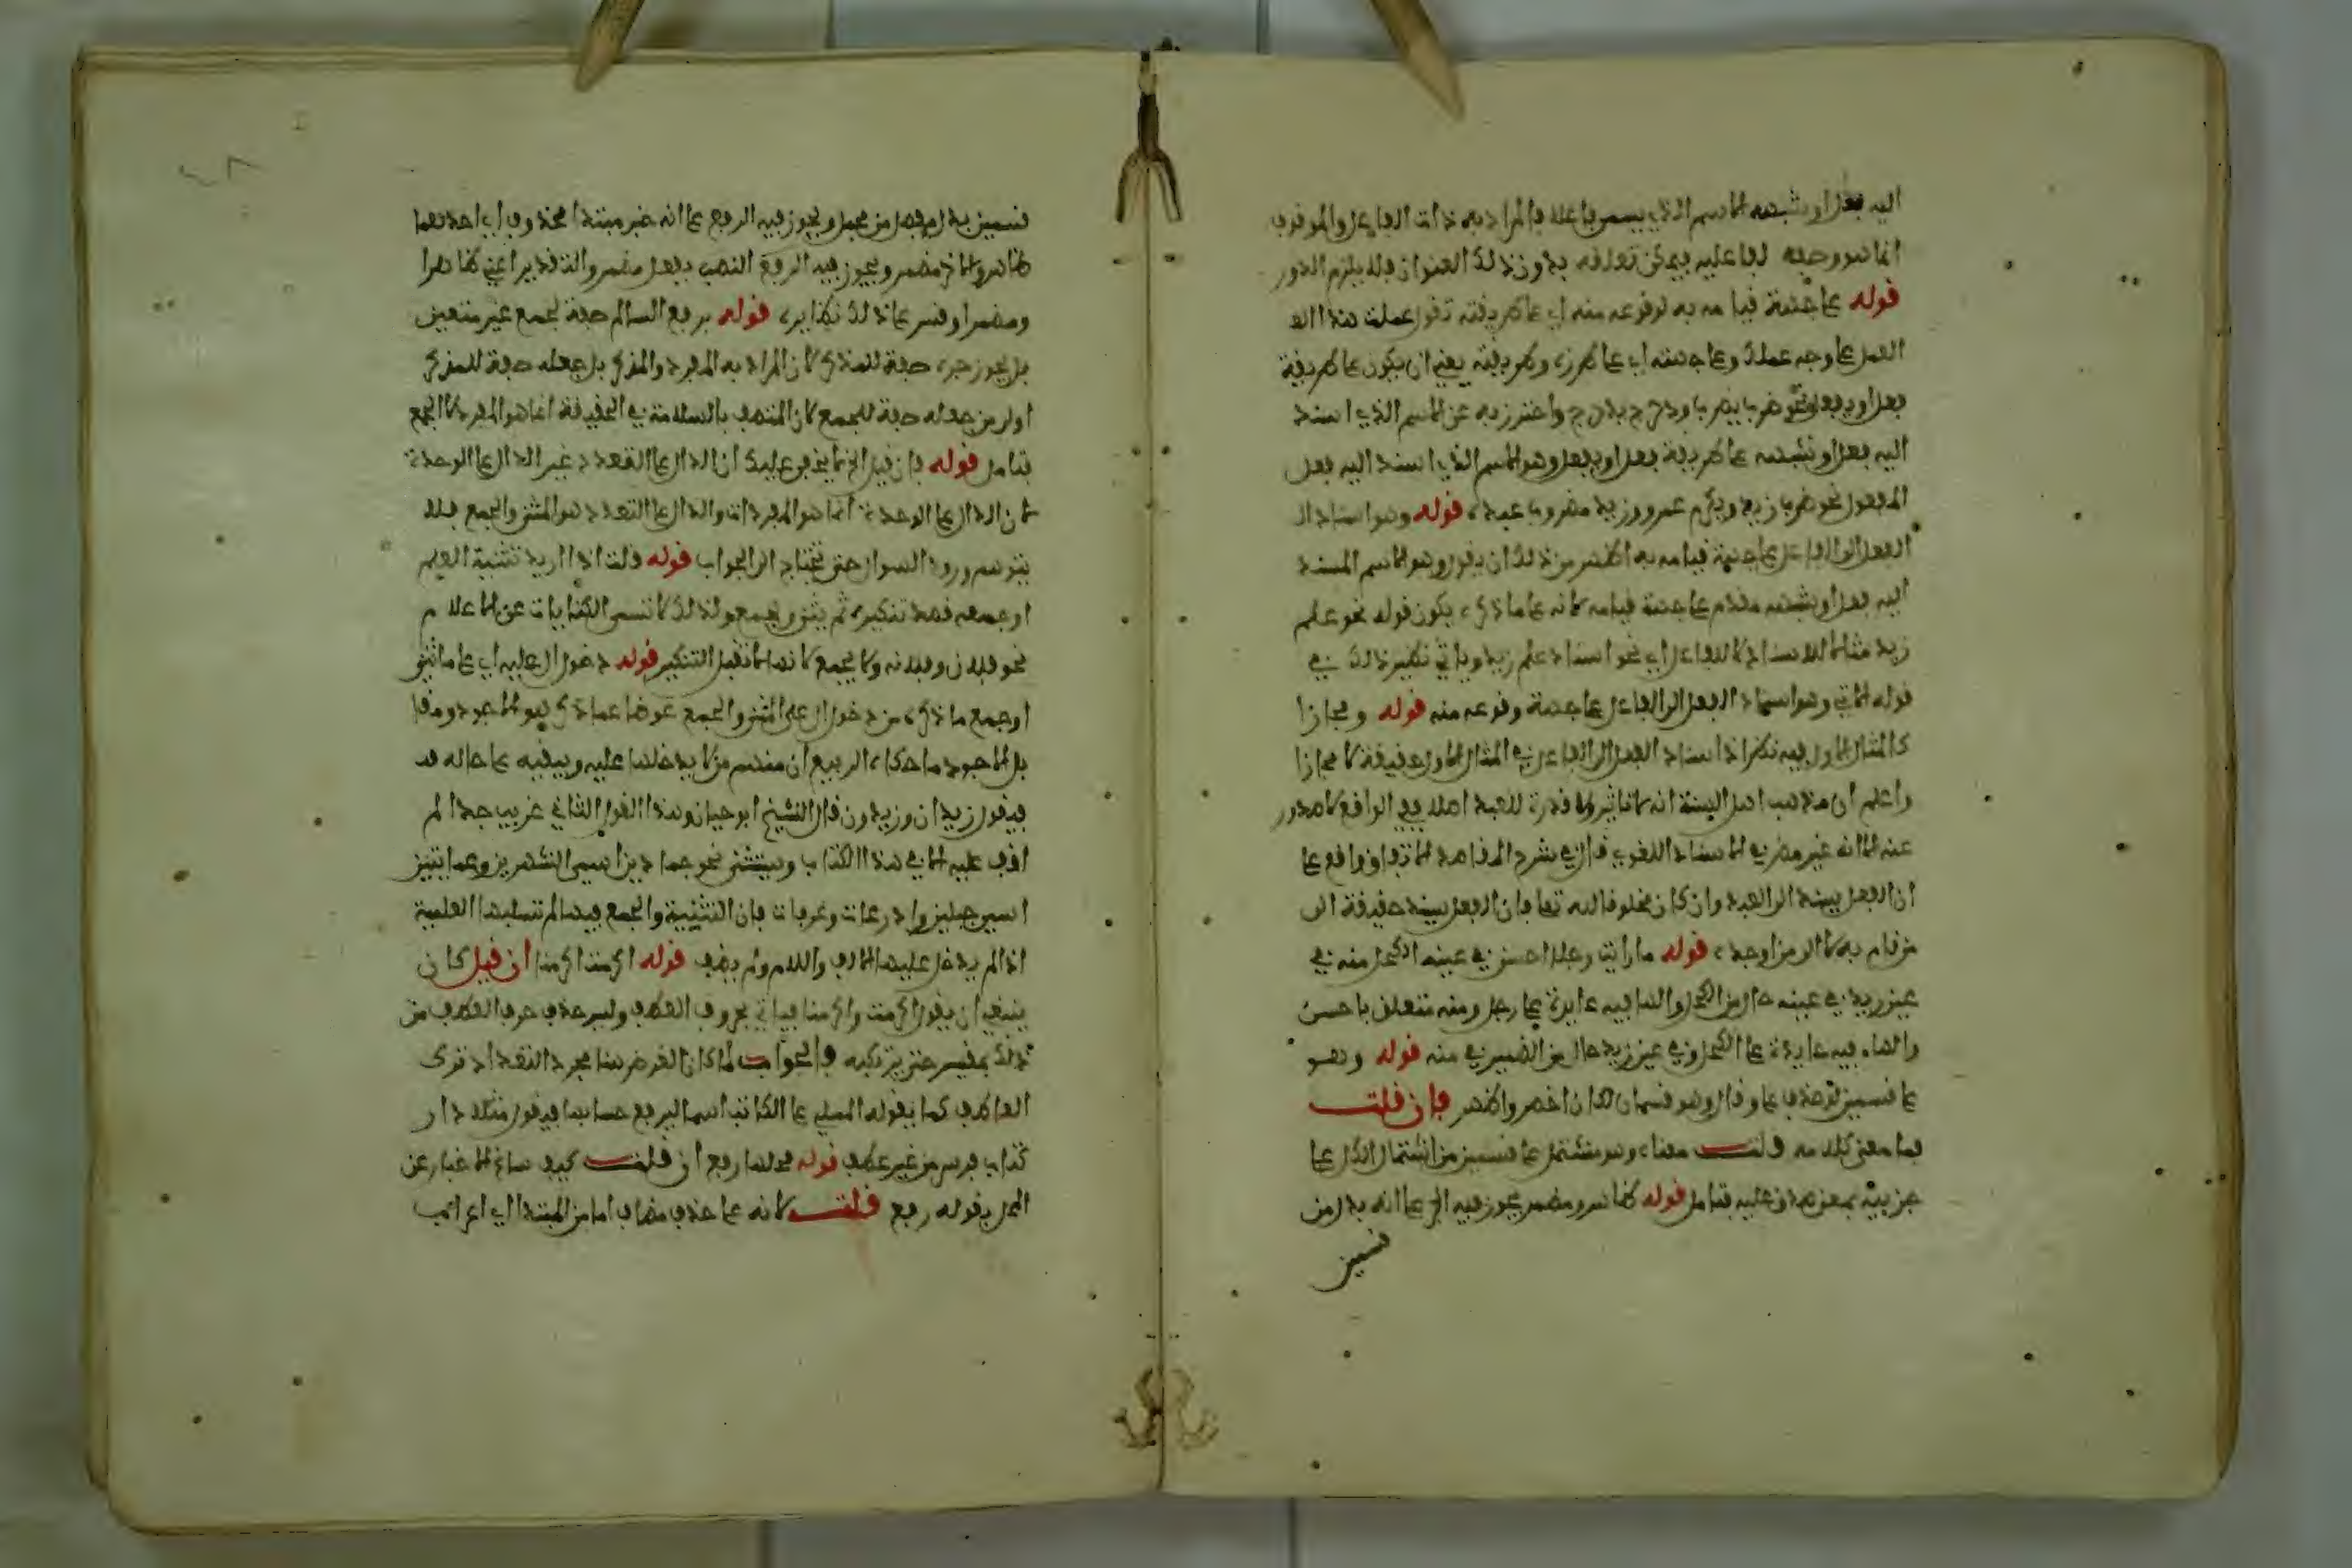 اليه فعل او شبهه الاسم الذي يسمى فاعلا فالمراد به ذات الفاعل والموقوف
انما هو وصفه لفاعليه فيمكن تعلقه بدون ذلك العنوان فلا يلزم الدور
قوله على جهة قيامه به او وقوعه منه اي على طريقته تقول عملت هذا
العمل على وجه عملك وعلى جهته اي على طرزه وطريقته يعني ان يكون على طريقة
فعل او يفعل نحو ضرب يضرب ودحرج يدحرج واحترز به عن الاسم الذي اسند
اليه فعل او شبهه على طريقة فعل او يفعل وهو الاسم الذي اسند اليه فعل
المفعول نحو ضرب زيد ويكرم عمرو وزيد مضروب عبده قوله وهو اسناد
الفعل الى الفاعل على جهة قيامه به اظهر من ذلك ان يقول وهو الاسم المسند
اليه فعل او شبهه مقدم على جهة قيامه لانه على ما ذكره يكون قوله نحو علم
زيد مثالا للاسناد لا للفاعل اي نحو اسناد علم زيد وياتي نظير ذلك في
قوله الاتي وهو اسناد الفعل الى الفاعل على جهة وقوعه منه قوله ومجازا
كالمثال الاول فيه نظر اذ اسناد الفعل الى الفاعل في المثال الاول حقيقة لا مجازا
واعلم ان مذهب اهل السنة انه لا تاثير ولا قدرة للعبد اصلا ففي الواقع لا صدور
عنه الا انه غير مضر في الاسناد اللغوي قال في شرح المقاصد الاتفاق واقع على
ان الفعل يسند الى العبد وان كان مخلوقا لله تعا فان الفعل يسند حقيقة الى
من قام به لا الى من اوجده قوله ما رايت رجلا احسن في عينه الكحل منه في
عين زيد في عينه حال من الكحل والها فيه عايدة على رجل ومنه متعلق باحسن
والهاء فيه عايدة على الكحل وفي عين زيد حال من الضمير في منه قوله وهو
على قسمين لو حذف على وقال وهو قسمان لكان اخصر واظهر فان قلت
فما معنى كلامه قلت معناه وهو مشتمل على قسمين من اشتمال الكل على
جزييه بمعنى صدق عليه فتامل قوله ظاهر ومضمر يجوز فيه الجر على انه بدل من
قسمين
قسمين بدل مفصل من مجمل ويجوز فيه الرفع على انه خبر مبتدا محذوف اي احدهما
ظاهر والاخر مضمر ويجوز فيه الرفع النصب بفعل مضمر والتقدير اعني ظاهرا
ومضمرا وقس على ذلك نظايره قوله برفع السالم صفة لجمع غير متعين
بل يجوز جره صفة للمذكر لان المراد به المفرد والمذكر بل جعله صفة للمذكر
اولى من جعله صفة للجمع لان المتصف بالسلامة في الحقيقة انما هو المفرد لا الجمع
فتامل قوله فان قيل الخ لا يخفى عليك ان الدال على التعدد غير الدال على الوحدة
لان الدال على الوحدة انما هو المفردات والدال على التعدد هو المثنى والجمع فلا
يتوهم ورود السوال حتى يحتاج الى الجواب قوله قلت اذا اريد تثنية العلم
او جمعه قصد تنكيره ثم يثنى ويجمع ولذلك لا تسمى الكنايات عن الاعلام
نحو فلان وفلانه ولا يجمع لانها لا تقبل التنكير قوله دخول ال عليه اي على ما ثني
او جمع ما ذكره من دخول ال على المثنى والجمع عوضا عما ذكر هو الاجود وفاقا
بل الاجود ما حكاه الربيع ان منهم من لا يدخلها عليه ويبقيه على حاله قد
فيقول زيدان وزيدون قال الشيخ ابو حيان وهذا القول الثاني غريب جدا لم
اقف عليه الا في هذا الكتاب ويستثنى نحو جمادين اسمى الشهرين وعمايتين
اسمى جبلين واذرعات وعرفات فان التثنية والجمع فيها لم تسلبها العلمية
اذ الم يدخل عليها الالف واللام ولم يضف قوله اكرمت اكرمنا ان قيل كان
ينبغي ان يقول اكرمت واكرمنا فياتي بحروف العطف وليس حذف حرف العطف من
ذلك بمقيس حتى يرتكبه فالجواب لما كان الغرض هنا مجرد التعداد ترك
العاطف كما يقوله الملي على الكاتب اشيا ليرفع حسابها فيقول مثلا دار
كتاب فرس من غير عطف قوله محلها رفع ان قلت كيف ساغ الاخبار عن
المحل بقوله رفع قلت لانه على حذف مضاف اما من المبتدا اي اعراب